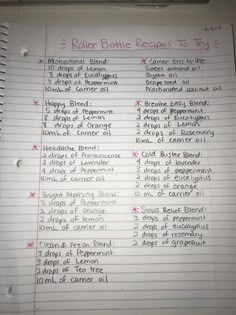 Roller Bottle Recipes To Try
Motivational Blend:
10 drops of Lemon
3 drops of Eucalyptus
3 drops of Peppermint
10mL of carrier oil
Happy Blend:
5 drops of Peppermint
8 drops of Lemon
8 drops of Orange
10mL of carrier oil
Headache Blend:
2 drops of Frankincense
2 drops of Lavender
4 drops of Peppermint
10mL of carrier oil
Bright Morning Blend:
3 drops of Peppermint
2 drops of Orange
2 drops of lemon
10mL of carrier oil
Clean & Fresh Blend:
3 drops of Peppermint
3 drops of Lemon
2 drops of Tea tree
10 mL of carrier oil
Carrier Oils to Use
Sweet almond oil
Jojoba oil
Grapeseed oil
Fractionated coconut oil
Breathe Easy Blend:
4 drops of Peppermint
2 drops of Eucalyptus
2 drops of Lemon
2 drops of Rosemary
10mL of carrier oil
Cold Buster Blend:
4 drops of lavender
3 drops of peppermint
3 drops of eucalyptus
2 drops of orange
10 mL of carrier oil
Sinus Relief Blend:
3 drops of peppermint
2 drops of eucalyptus
2 drops of rosemary
2 drops of grapefruit